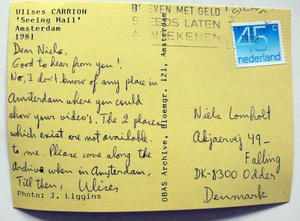 Ulises CARRION
'Seeing Mail'
Amsterdam
1981
Dear Niels,
Good to hear from you!
No, I don't know of any place in
Amsterdam where you could
show your video's. The 2 places
which exist are not available
to me. Please come along the
archive when in Amsterdam,
Till then, Ulises
Photo: J. Liggins
OBAS Archive, Bloemgr. 121, Amsterdam
VEN MET GELD
LATEN
45 c
nederland
Niels Lomholt
Akjaervej 49
Falling
DK-8300 Odder
Denmark